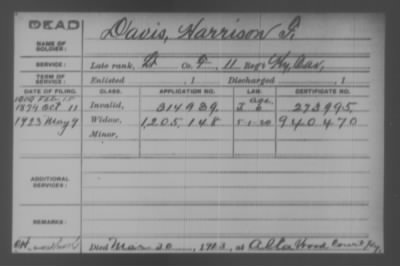 DEAD
NAME OF SOLDIER: Davis, Harrison F.
SERVICE: Late rank, Lt Co. F, 11 Reg't Ky, Cav.,
TERM OF SERVICE: Enlisted , 1 Discharged , 1
DATE OF FILING. CLASS. APPLICATION NO. LAW. CERTIFICATE NO.
Feb. 15 age,
1879 Oct 11 Invalid, 314939 273995
1923 May 9 Widow, 1,205,148 5-1-20 940470
Minor,
ADDITIONAL SERVICES:
REMARKS:
Died Mar 20, 1923, at Alta Wood Court Ky,